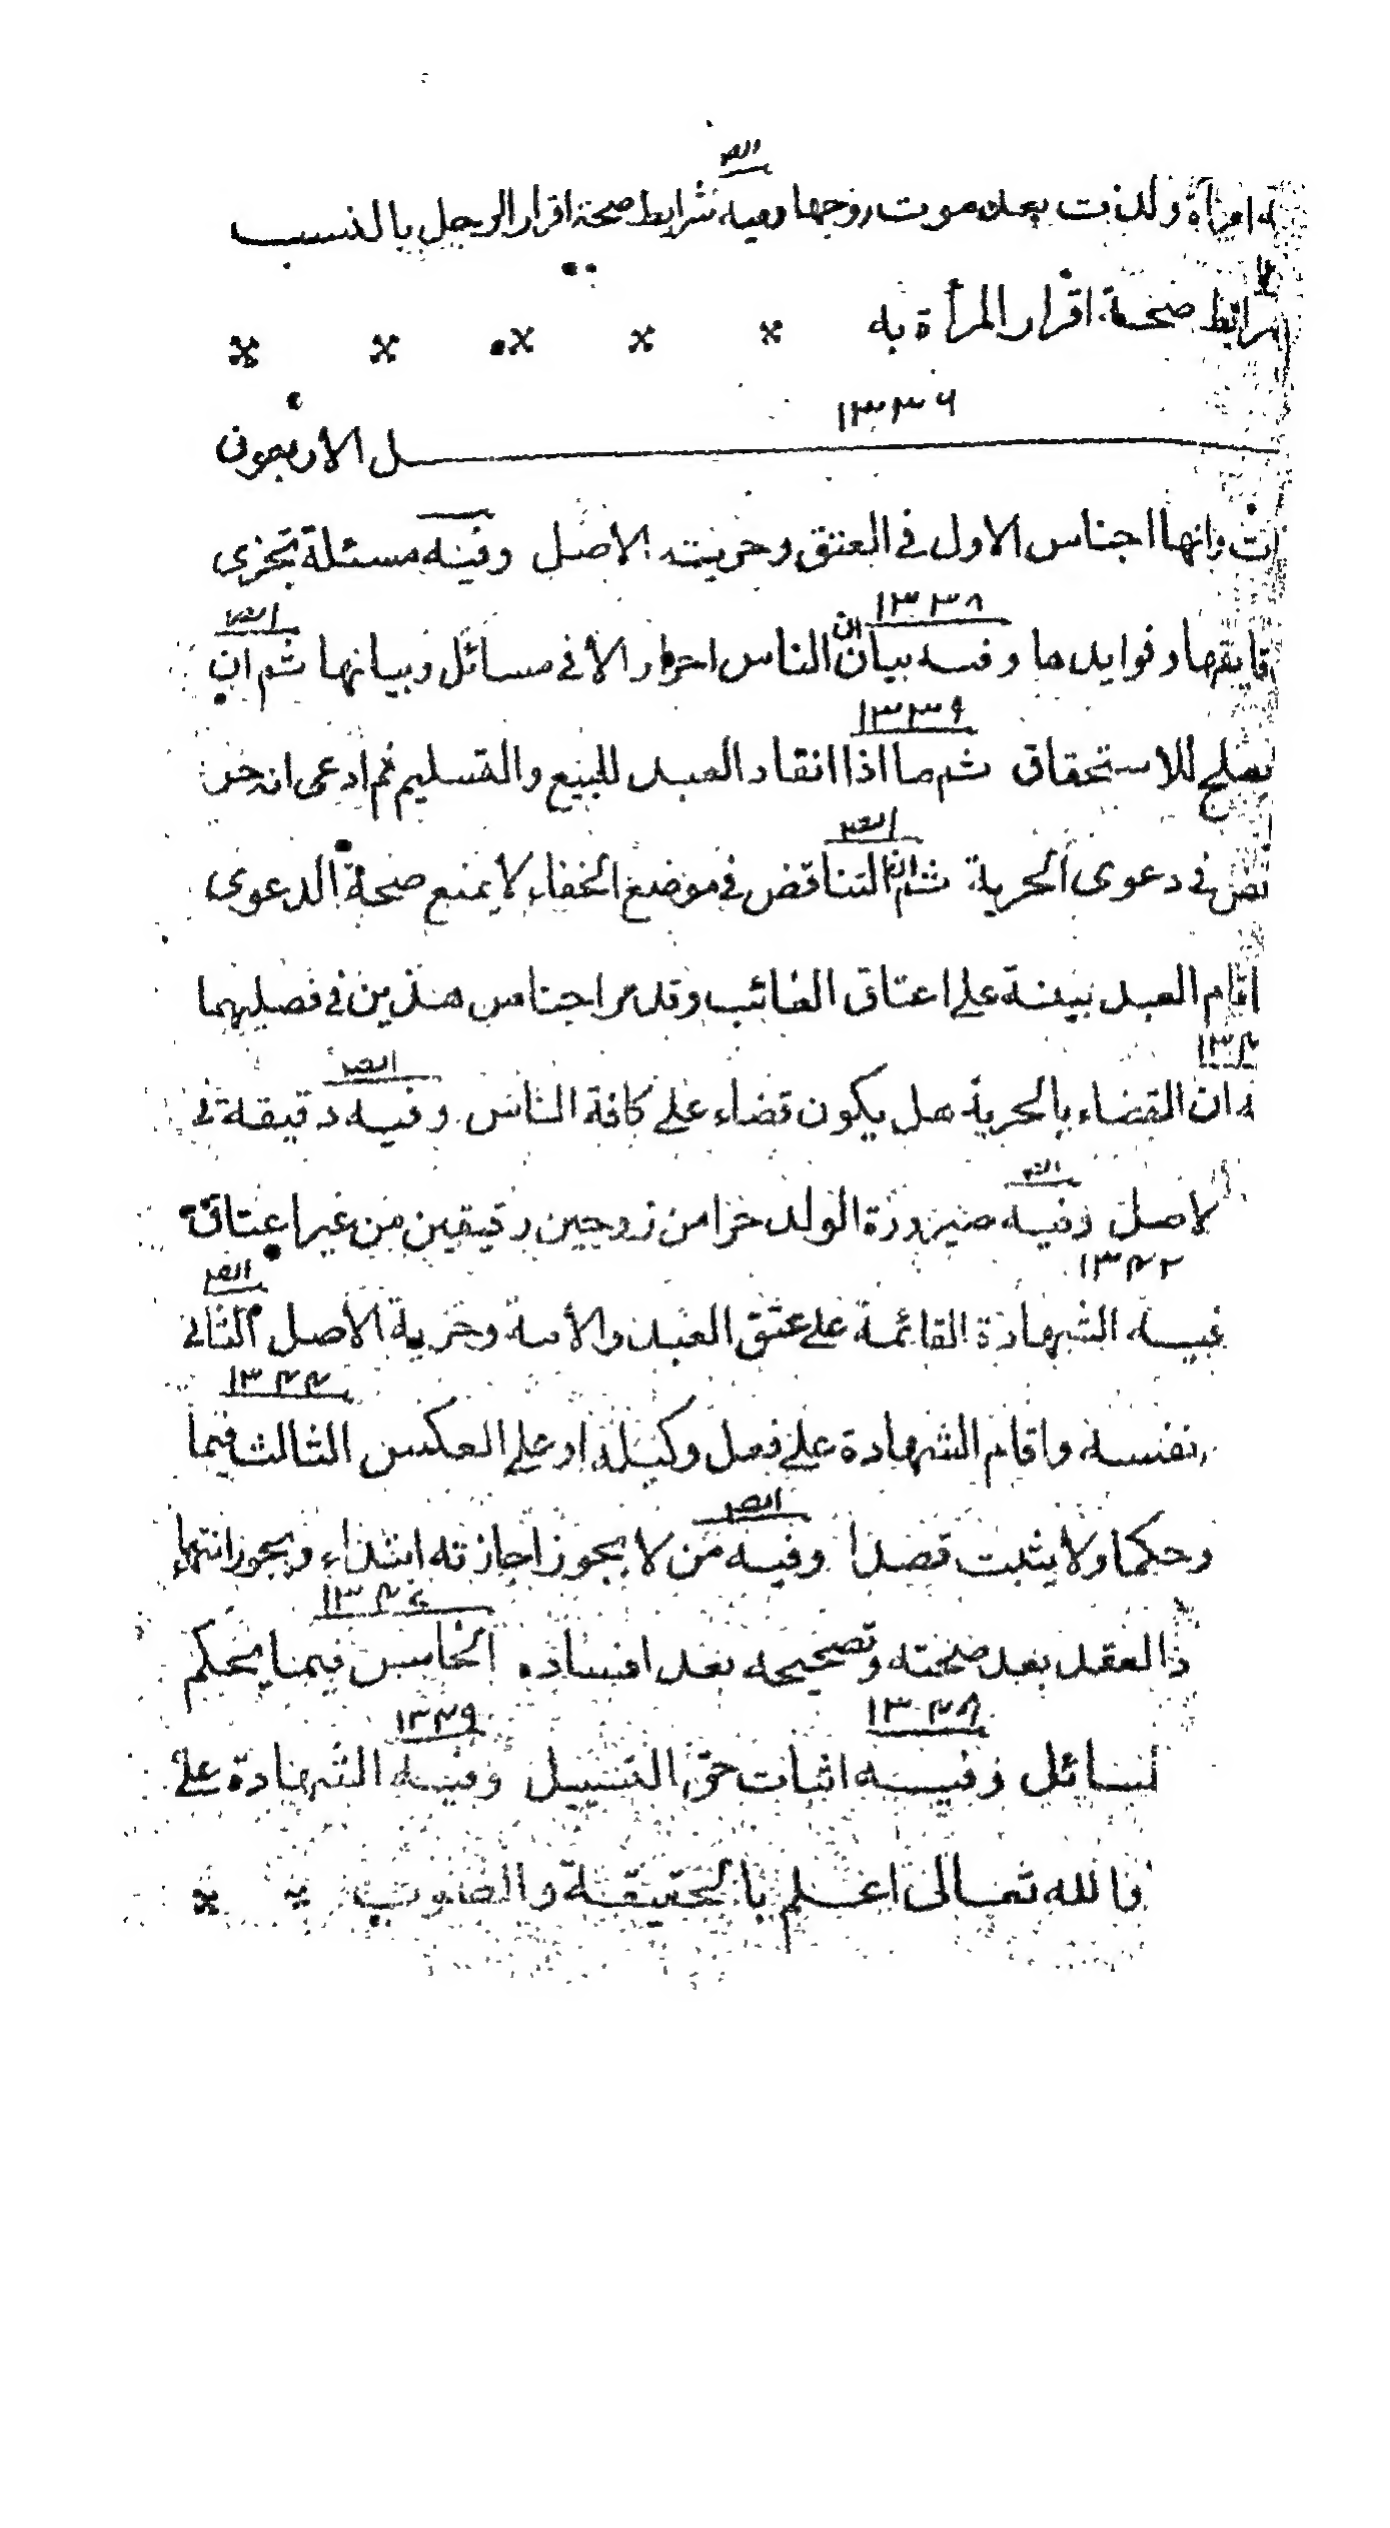 امرأة ولدت بعد موت زوجها وفيه شرايط صحة اقرار الرجل بالنسب
شرايط صحة اقرار المرأة به
١٣٣٦
ل الاربعون
وانها اجناس الاول في العتق وحرية الاصل وفيه مسئلة تجزى
١٣٣٨
وفوايدها وفيه بيان ان الناس احرار الا في مسائل وبيانها ثم ان
١٣٣٩
يصلح للاستحقاق ثم ما اذا انقاد العبد للبيع والتسليم ثم ادعى انه حر
في دعوى الحرية ثم التناقض في موضع الخفاء لا يمنع صحة الدعوى
اقام العبد بينة على اعتاق الغائب وقد مر اجناس هذين في فصليهما
ان القضاء بالحرية هل يكون قضاء على كافة الناس وفيه دقيقة في
لاصل وفيه صيرورة الولد حرا من زوجين رقيقين من غير اعتاق
١٣٤٢
فيه الشهادة القائمة على عتق العبد والأمة وحرية الأصل الثاني
١٣٤٤
بنفسه واقام الشهادة على فعل وكيله او على العكس الثالث فيما
وحكما ولا يثبت قصدا وفيه من لا يجوز اجازته ابتداء ويجوز انتهاء
١٣٤٦
العقد بعد صحته وتصحيحه بعد افساده الخامس فيما يحكم
١٣٤٨ ١٣٤٩
لمسائل وفيه اثبات حق التسبيل وفيه الشهادة على
والله تعالى اعلم بالحقيقة والصوب